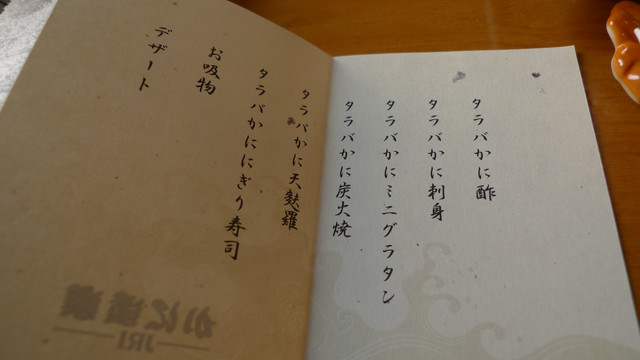 タラバかに酢
タラバかに刺身
タラバかにミニグラタン
タラバかに炭火焼
タラバかに天麩羅
タラバかににぎり寿司
お吸物
デザート